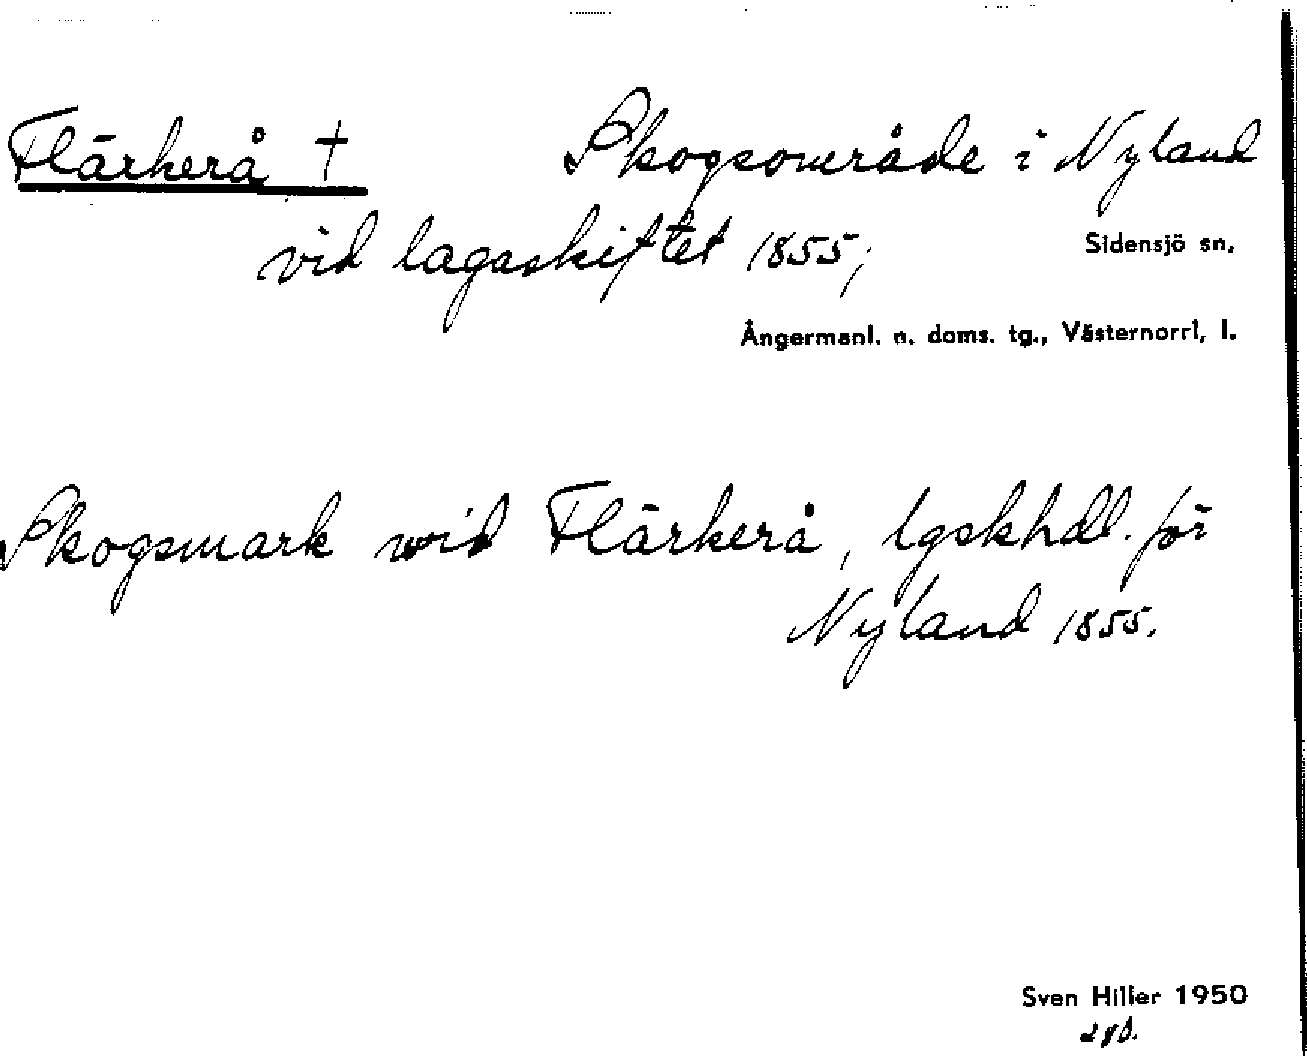 Flärkerå † Skogsområde i Nyland
vid lagaskiftet 1855; Sidensjö sn.
Ångermanl. n. doms. tg., Västernorrl. l.
Skogsmark wid Flärkerå, lgskhdl. för
Nyland 1855.
Sven Hiller 1950